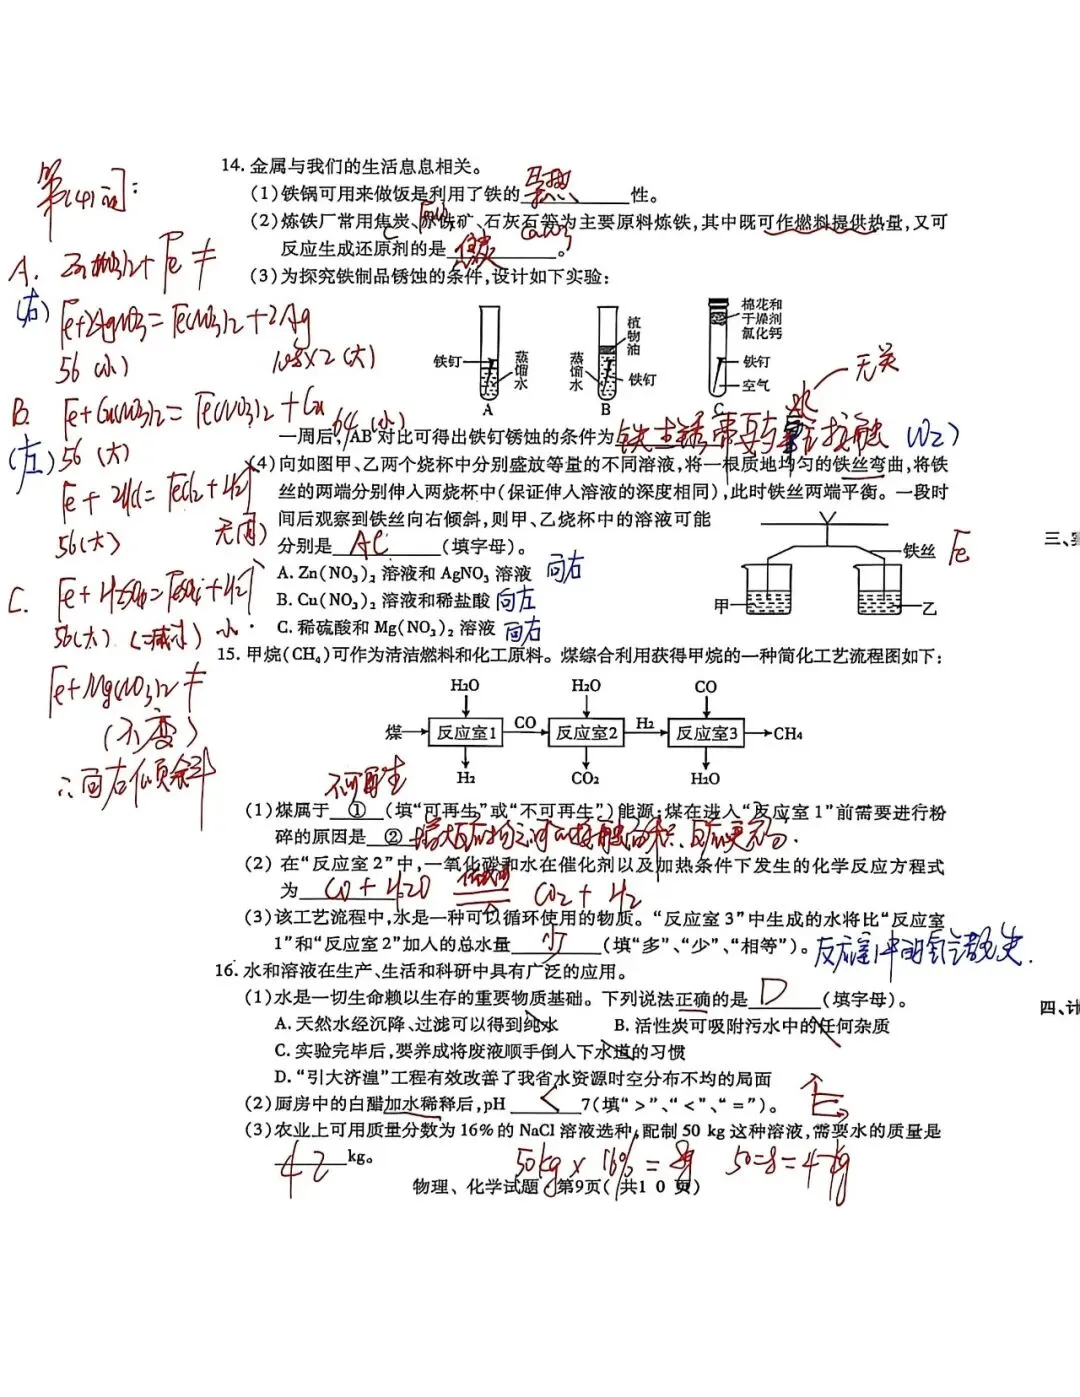 第(4)问:
A. Zn(NO₃)₂+Fe ≠
(右) Fe+2AgNO₃=Fe(NO₃)₂+2Ag
56 (小) 108×2 (大)
B. Fe+Cu(NO₃)₂=Fe(NO₃)₂+Cu
(左) 56 (大) 64 (小)
Fe+2HCl=FeCl₂+H₂↑
56(大) 无(两)
C. Fe+H₂SO₄=FeSO₄+H₂↑
56(大) (减小) 小
Fe+Mg(NO₃)₂ ≠
(不变)
∴向右倾斜
14. 金属与我们的生活息息相关。
(1)铁锅可用来做饭是利用了铁的 导热 性。
(2)炼铁厂常用焦炭、赤铁矿、石灰石等为主要原料炼铁,其中既可作燃料提供热量,又可
C CaCO₃
反应生成还原剂的是 焦炭 。
(3)为探究铁制品锈蚀的条件,设计如下实验:
铁钉
蒸馏水
A
植物油
蒸馏水
铁钉
B
棉花和
干燥剂
氯化钙
铁钉
空气
C
无关
一周后,AB 对比可得出铁钉锈蚀的条件为 铁生锈需要与氧气接触 (O₂)
水
(4)向如图甲、乙两个烧杯中分别盛放等量的不同溶液,将一根质地均匀的铁丝弯曲,将铁
丝的两端分别伸入两烧杯中(保证伸入溶液的深度相同),此时铁丝两端平衡。一段时
间后观察到铁丝向右倾斜,则甲、乙烧杯中的溶液可能
分别是 AC (填字母)。
A. Zn(NO₃)₂ 溶液和 AgNO₃ 溶液 向右
B. Cu(NO₃)₂ 溶液和稀盐酸 向左
C. 稀硫酸和 Mg(NO₃)₂ 溶液 向右
铁丝 Fe
甲
乙
15. 甲烷(CH₄)可作为清洁燃料和化工原料。煤综合利用获得甲烷的一种简化工艺流程图如下:
H₂O H₂O CO
煤 反应室1 CO 反应室2 H₂ 反应室3 CH₄
H₂ CO₂ H₂O
不可再生
(1)煤属于 ① (填“可再生”或“不可再生”)能源;煤在进入“反应室 1”前需要进行粉
碎的原因是 ② 增大反应物之间的接触面积、反应更充分.
(2) 在“反应室 2”中,一氧化碳和水在催化剂以及加热条件下发生的化学反应方程式
为 CO+H₂O 催化剂 △ CO₂+H₂
(3)该工艺流程中,水是一种可以循环使用的物质。“反应室 3”中生成的水将比“反应室
1”和“反应室 2”加入的总水量 少 (填“多”、“少”、“相等”)。
16. 水和溶液在生产、生活和科研中具有广泛的应用。
(1)水是一切生命赖以生存的重要物质基础。下列说法正确的是 D (填字母)。
A. 天然水经沉降、过滤可以得到纯水 B. 活性炭可吸附污水中的任何杂质
C. 实验完毕后,要养成将废液顺手倒入下水道的习惯
D. “引大济湟”工程有效改善了我省水资源时空分布不均的局面
(2)厨房中的白醋加水稀释后,pH < 7(填“>”、“<”、“=”)。
(3)农业上可用质量分数为 16%的 NaCl 溶液选种,配制 50 kg 这种溶液,需要水的质量是
42 kg。
50kg×16%=8g 50-8=42kg
物理、化学试题·第9页(共1 0 页)
四、计